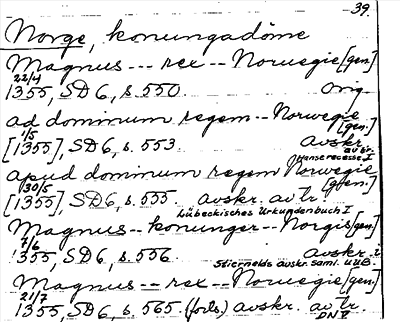 39.
Norge, konungadöme
Magnus --- rex -- Norwegie [gen.]
22/4
1355, SD 6, s. 550. Orig.
ad dominum regem -- Norwegie [gen.]
1/5
[1355], SD 6, s. 553. avskr. av tr.
Hanserecesse I
apud dominum regem Norwegie [gen.]
30/5
[1355], SD 6, s. 555. avskr. av tr.
Lübeckisches Urkundenbuch I
Magnus -- konunger -- Norgis [gen.]
7/6
1355, SD 6, s. 556. avskr. i
Stiernelds avskr. saml. UUB.
Magnus -- rex -- Norwegie [gen.]
21/7
1355, SD 6, s. 565. (forts.) avskr. av tr.
DN V